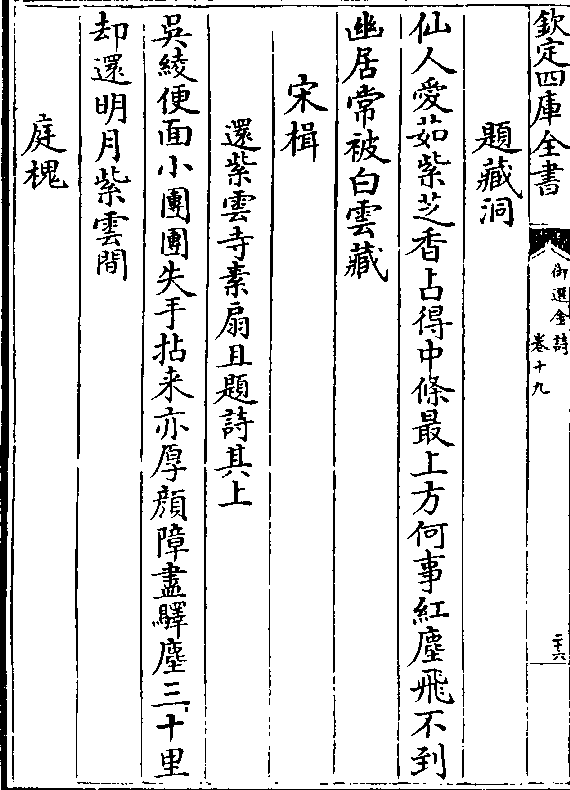 欽定四庫全書
御選金詩
卷十九
二十六
題藏洞
仙人愛茹紫芝香占得中條最上方何事紅塵飛不到
幽居常被白雲藏
宋楫
還紫雲寺素扇且題詩其上
吳綾便面小團團失手拈来亦厚顔障盡驛塵三十里
却還明月紫雲間
庭槐